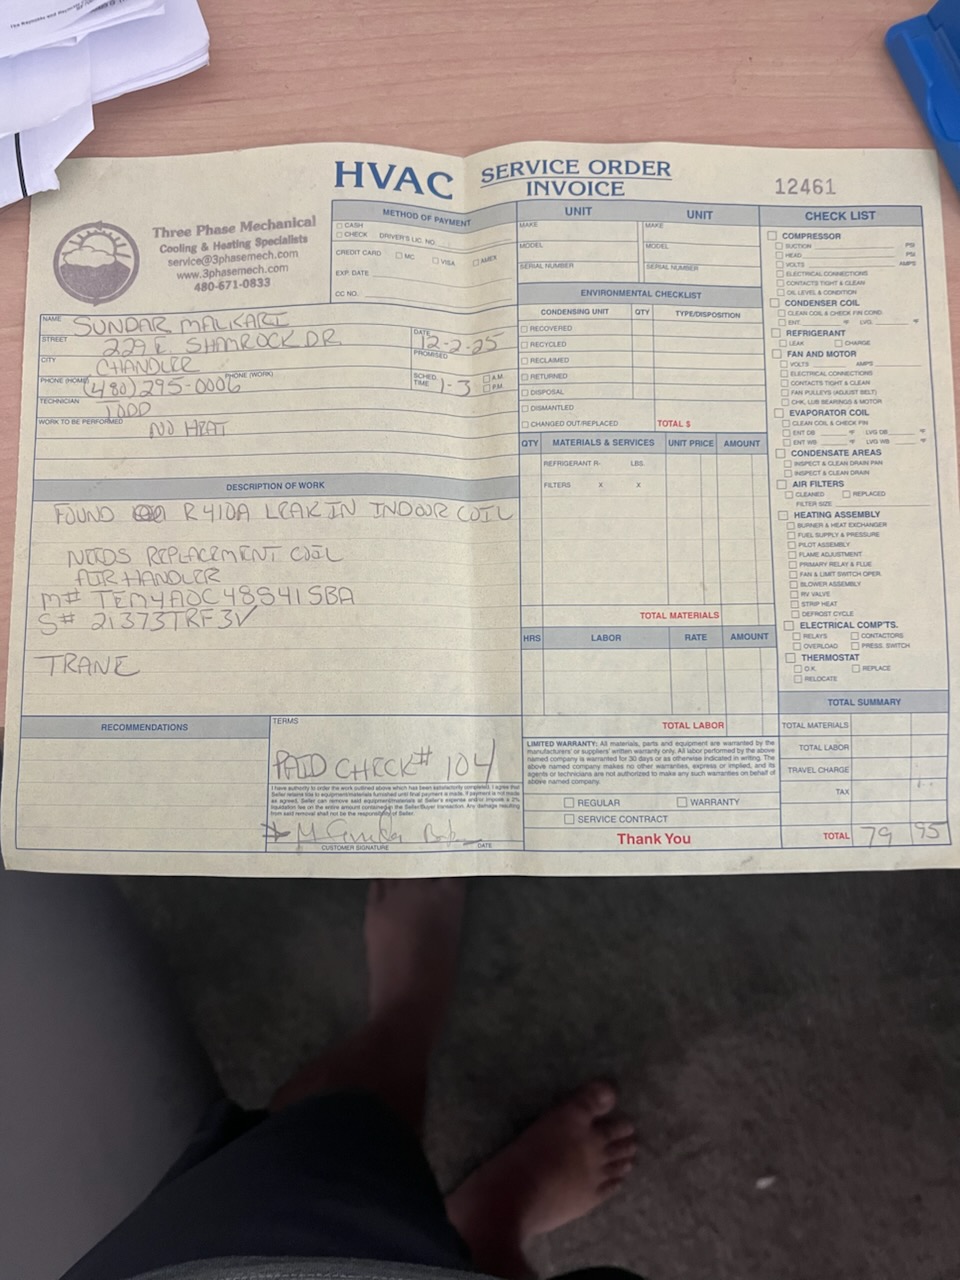 HVAC
SERVICE ORDER
INVOICE
12461
Three Phase Mechanical
Cooling & Heating Specialists
service@3phasemech.com
www.3phasemech.com
480-671-0833
METHOD OF PAYMENT
CASH
CHECK DRIVER'S LIC. NO.
CREDIT CARD MC VISA AMEX
EXP. DATE
CC NO.
NAME SUNDAR MALKARI
STREET 229 E. SHAMROCK DR
DATE 12-2-25
CITY CHANDLER
PROMISED
PHONE (HOME) (480) 295-0006 PHONE (WORK)
SCHED. TIME 1-3 A.M. P.M.
TECHNICIAN TODD
WORK TO BE PERFORMED NO HEAT
DESCRIPTION OF WORK
FOUND R410A LEAK IN INDOOR COIL
NEEDS REPLACEMENT COIL
AIR HANDLER
M# TEM4A0C48S41SBA
S# 21373TRF3V
TRANE
RECOMMENDATIONS
TERMS
PAID CHECK# 104
I have authority to order the work outlined above which has been satisfactorily completed. I agree that
Seller retains title to equipment/materials furnished until final payment is made. If payment is not made
as agreed, Seller can remove said equipment/materials at Seller's expense and/or impose a 2%
liquidation fee on the entire amount contained in the Seller/Buyer transaction. Any damage resulting
from said removal shall not be the responsibility of Seller.
CUSTOMER SIGNATURE DATE
UNIT UNIT
MAKE MAKE
MODEL MODEL
SERIAL NUMBER SERIAL NUMBER
ENVIRONMENTAL CHECKLIST
CONDENSING UNIT QTY TYPE/DISPOSITION
RECOVERED
RECYCLED
RECLAIMED
RETURNED
DISPOSAL
DISMANTLED
CHANGED OUT/REPLACED TOTAL $
QTY MATERIALS & SERVICES UNIT PRICE AMOUNT
REFRIGERANT R- LBS.
FILTERS X X
TOTAL MATERIALS
HRS LABOR RATE AMOUNT
TOTAL LABOR
LIMITED WARRANTY: All materials, parts and equipment are warranted by the
manufacturers' or suppliers' written warranty only. All labor performed by the above
named company is warranted for 30 days or as otherwise indicated in writing. The
above named company makes no other warranties, express or implied, and its
agents or technicians are not authorized to make any such warranties on behalf of
above named company.
REGULAR WARRANTY
SERVICE CONTRACT
Thank You
CHECK LIST
COMPRESSOR
SUCTION PSI
HEAD PSI
VOLTS AMPS
ELECTRICAL CONNECTIONS
CONTACTS TIGHT & CLEAN
OIL LEVEL & CONDITION
CONDENSER COIL
CLEAN COIL & CHECK FIN COND.
ENT. °F LVG. °F
REFRIGERANT
LEAK CHARGE
FAN AND MOTOR
VOLTS AMPS
ELECTRICAL CONNECTIONS
CONTACTS TIGHT & CLEAN
FAN PULLEYS (ADJUST BELT)
CHK, LUB BEARINGS & MOTOR
EVAPORATOR COIL
CLEAN COIL & CHECK FIN
ENT DB °F LVG DB °F
ENT WB °F LVG WB °F
CONDENSATE AREAS
INSPECT & CLEAN DRAIN PAN
INSPECT & CLEAN DRAIN
AIR FILTERS
CLEANED REPLACED
FILTER SIZE
HEATING ASSEMBLY
BURNER & HEAT EXCHANGER
FUEL SUPPLY & PRESSURE
PILOT ASSEMBLY
FLAME ADJUSTMENT
PRIMARY RELAY & FLUE
FAN & LIMIT SWITCH OPER.
BLOWER ASSEMBLY
RV VALVE
STRIP HEAT
DEFROST CYCLE
ELECTRICAL COMP'TS.
RELAYS CONTACTORS
OVERLOAD PRESS. SWITCH
THERMOSTAT
O.K. REPLACE
RELOCATE
TOTAL SUMMARY
TOTAL MATERIALS
TOTAL LABOR
TRAVEL CHARGE
TAX
TOTAL 79 95